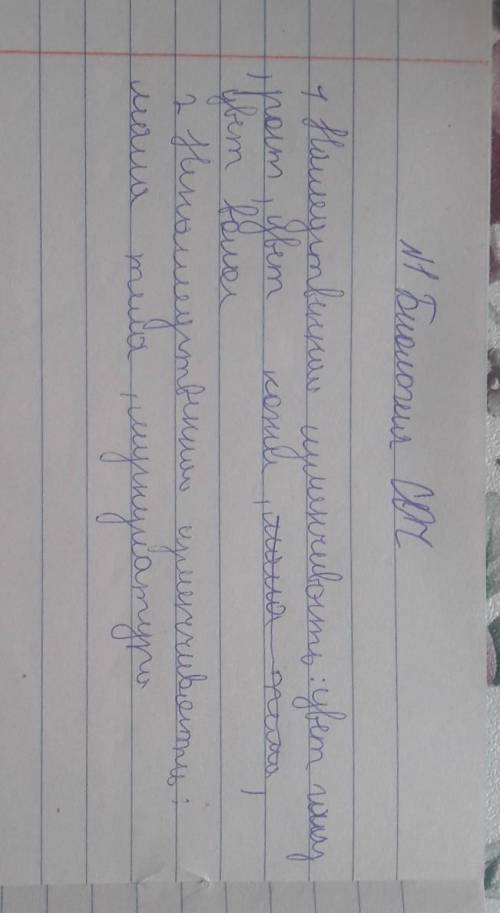 №1 Биология СОЧ
1 Наследственная изменчивость: цвет глаз
, рост, цвет кожи, масса тела,
цвет волос
2 Ненаследственная изменчивость:
масса тела, мускулатура